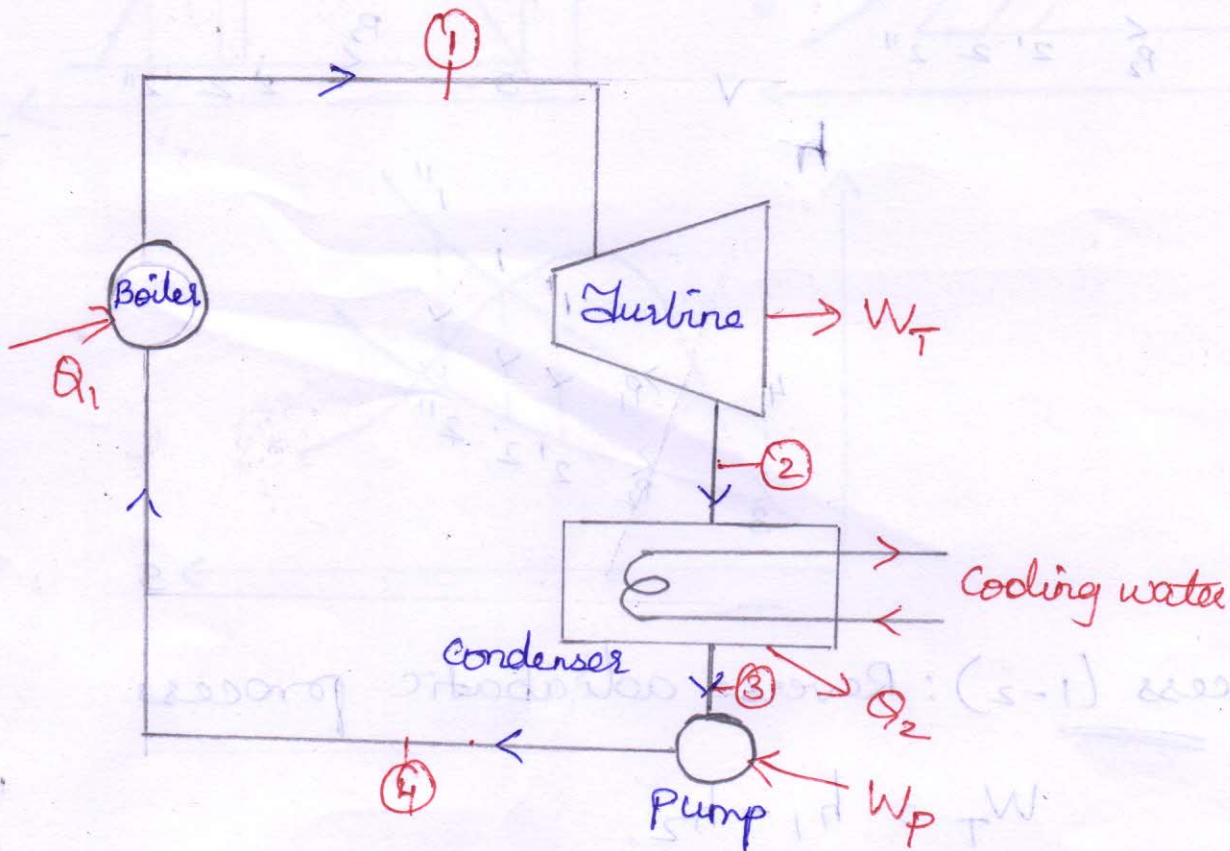 1
Boiler
Turbine
W_T
Q_1
2
Cooling water
Condenser
3
Q_2
4
Pump
W_P